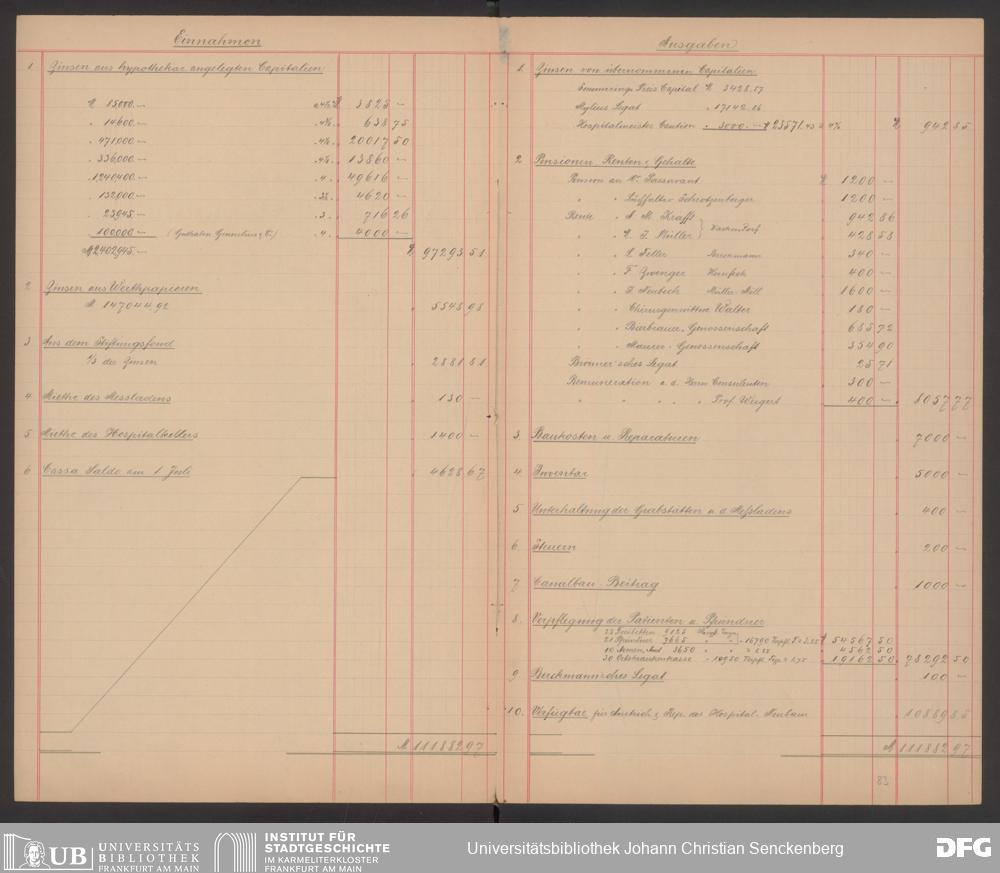 Einnahmen
1. Zinsen aus hypothekar. angelegten Capitalien
M 15000.— 3825 —
" 14600.— " 4½ " 638 75
" 471000.— " 4¼ " 20017 50
" 336000.— 13860 —
" 1240400.— " 4 " 49616 —
" 132000.— " 3½ " 4620 —
" 23945.— " 3 " 716 26
" 100000.— " 4 " 4000 —
M 2402945.— 97293 51
2. Zinsen aus Werthpapieren
M. 147044.92 5548 98
3. Aus dem Stiftungsfond
⅓ der Zinsen 2881 81
4. Miethe des Messladens 130 —
5. Miethe des Hospitalkellers 1400 —
6. Cassa Saldo am 1 Juli 4628 67
M 111882 97
Ausgaben
1. Zinsen von übernommenen Capitalien
Preis Capital M 3428.57
Mylius Legat " 17142.86
Hospitalmeister Caution " 3000.— M 23571.43 à 4% M 942 85
2. Pensionen, Renten & Gehalte
Pension an W. Passavant M 1200 —
" " 1200 —
Rente " A M. Krafft 942 86
" " Müller 428 58
" " 340 —
" " F. Zwenger 400 —
" " 1600 —
" " Chirurgenwittwe Walter 180 —
" " Bierbrauer-Genossenschaft 685 72
" " Maurer-Genossenschaft 354 90
Brönner'sches Legat 25 71
Remuneration a. d. Herrn Consulenten 300 —
" " " " " Prof. Weigert 400 — 8057 77
3. Baukosten u. Reparaturen 7000 —
4. Inventar 5000 —
5. Unterhaltung der Grabstätten u. d. Meßladens 400 —
6. Steuern 200 —
7. Canalbau-Beitrag 1000 —
8. Verpflegung der Patienten u. Pfründner
25 Freibetten 9125
21 Pfründner 7665 " " " 16790 Verpfl. T. à 3.25 M 54567 50
10 3650 " " " 4562 50
30 Ortskrankenkasse " 10950 Verpfl. Tage à 1.75 " 19162 50 78292 50
9. Berckmann'sches Legat 100 —
10. Verfügbar für Anstrich & Rep. des Hospital-Neubau 10889 85
M 111882 97
83
UB UNIVERSITÄTS
BIBLIOTHEK
FRANKFURT AM MAIN
INSTITUT FÜR
STADTGESCHICHTE
IM KARMELITERKLOSTER
FRANKFURT AM MAIN
Universitätsbibliothek Johann Christian Senckenberg
DFG